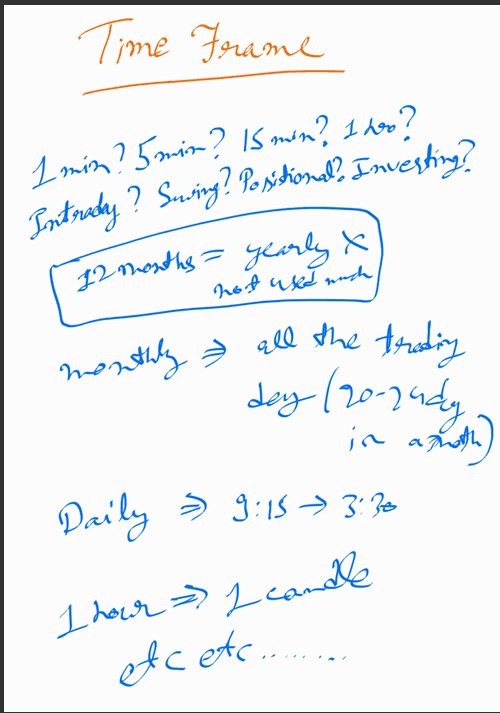 Time Frame
1 min? 5 min? 15 min? 1 hoo?
Intraday? Swing? Positional? Investing?
12 months = yearly X
not used much
monthly ⇒ all the trading
day (20-24 day
in a month)
Daily ⇒ 9:15 → 3:30
1 hour ⇒ 1 candle
etc etc ........